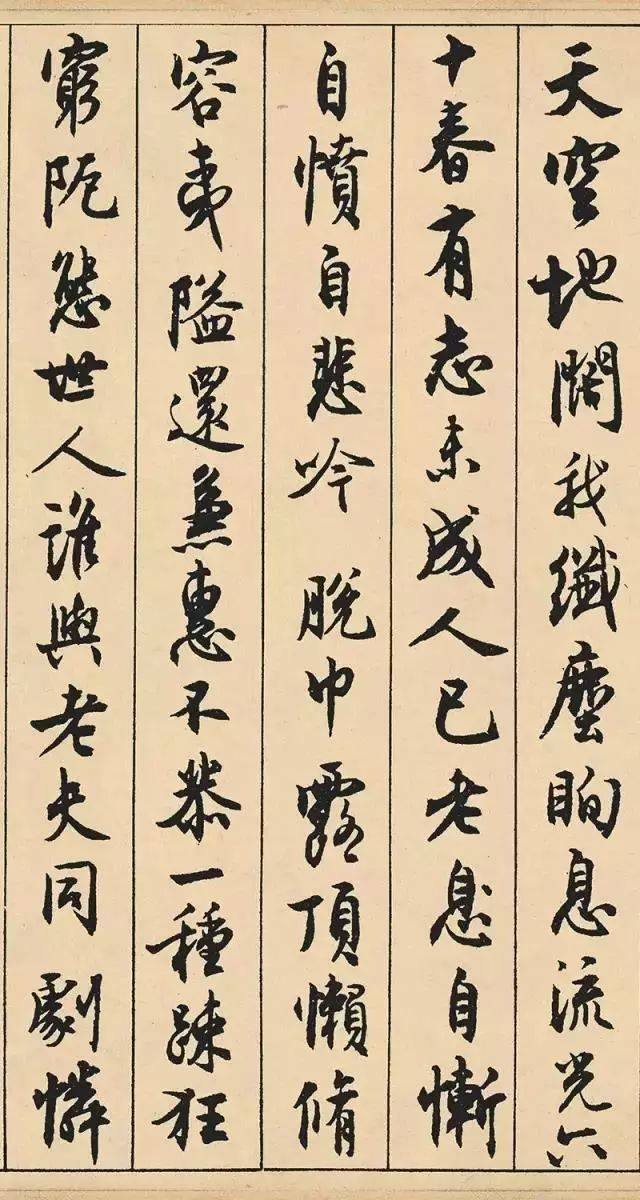 天空地闊我纖塵眴息流光六
十春有志未成人已老息自慚
自憤自悲吟脫巾露頂懶脩
容夷隘還兼惠不恭一種疎狂
窮阨態世人誰與老夫同劇憐